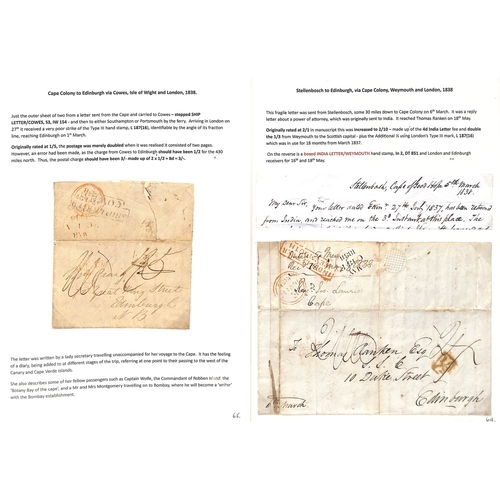 Cape Colony to Edinburgh via Cowes, Isle of Wight and London, 1838.
Just the outer sheet of two from a letter sent from the Cape and carried to Cowes – stepped SHIP
LETTER/COWES, S3, IW 154 - and then to either Southampton or Portsmouth by the ferry. Arriving in London on
27th it received a very poor strike of the Type III hand stamp, L 187(16), identifiable by the angle of its fraction
line, reaching Edinburgh on 1st March.
Originally rated at 1/5, the postage was merely doubled when it was realised it consisted of two pages.
However, an error had been made, as the charge from Cowes to Edinburgh should have been 1/2 for the 430
miles north. Thus, the postal charge should have been 3/- made up of 2 x 1/2 + 8d = 3/-.
Edinburgh
N B
The letter was written by a lady secretary travelling unaccompanied for her voyage to the Cape. It has the feeling
of a diary, being added to at different stages of the trip, referring at one point to their passing to the west of the
Canary and Cape Verde Islands.
She also describes some of her fellow passengers such as Captain Wolfe, the Commandant of Robben Island: the
'Botany Bay of the cape', and a Mr and Mrs Montgomery travelling on to Bombay, where he will become a
with the Bombay establishment.
Stellenbosch to Edinburgh, via Cape Colony, Weymouth and London, 1838
This fragile letter was sent from Stellenbosch, some 30 miles down to Cape Colony on 6th March. It was a reply
letter about a power of attorney, which was originally sent to India. It reached Thomas Ranken on 18th May.
Originally rated at 2/1 in manuscript this was increased to 2/10 – made up of the 4d India Letter fee and double
the 1/3 from Weymouth to the Scottish capital - plus the Additional ½ using London's Type III mark, L 187(16)
which was in use for 18 months from March 1837.
On the reverse is a boxed INDIA LETTER/WEYMOUTH hand stamp, In 2, DT 851 and London and Edinburgh
receivers for 16th and 18th May.
Stellenbosch, Cape of Good Hope 5th March
1838.
My dear Sir, your letter dated Edinr 27th July, 1837, has been returned
from India, and reached me on the 3d Instant at this place. The
Cape
To Thomas Ranken Esqr
S. S. C
10 Duke Street
Edinburgh
6th March